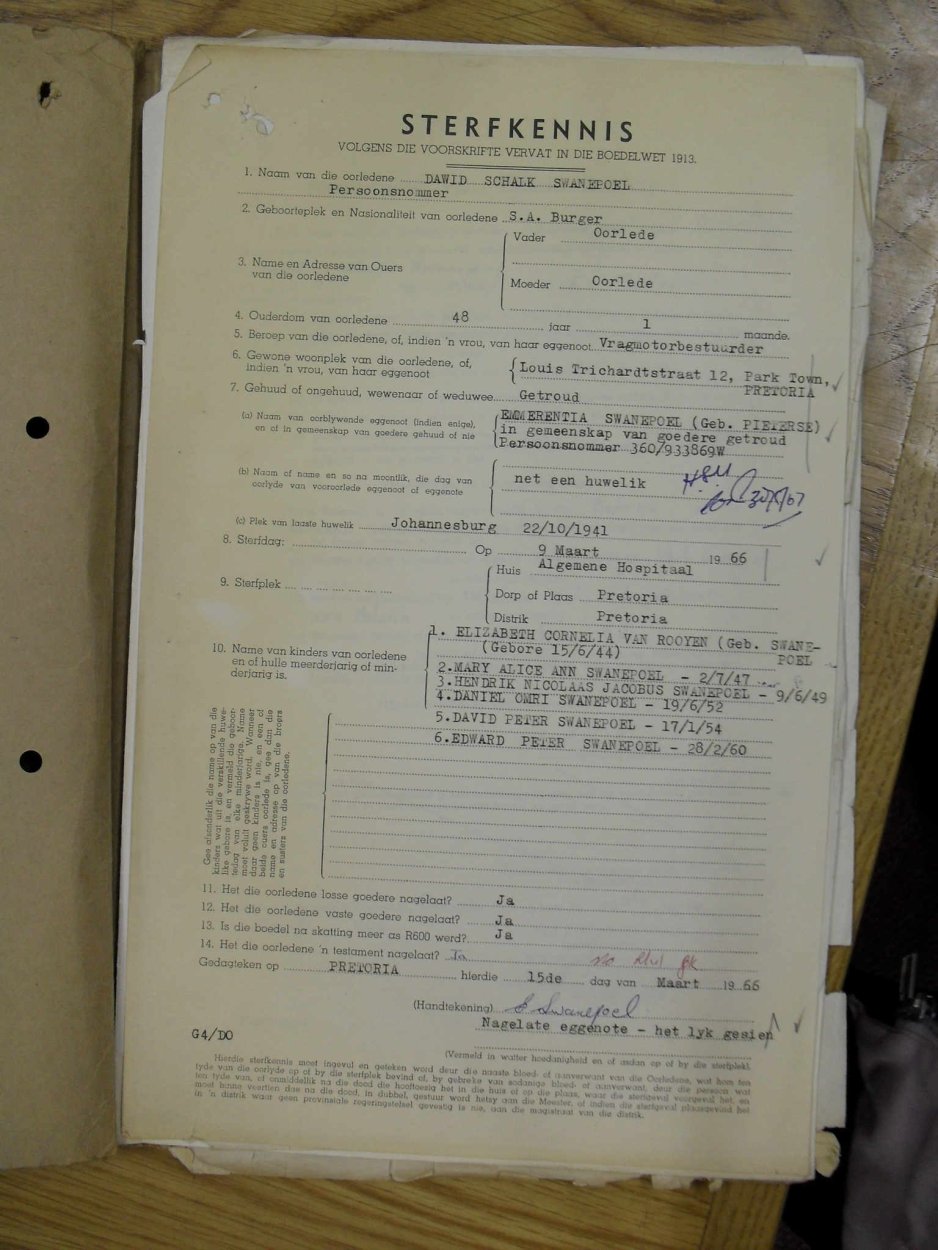 STERFKENNIS
VOLGENS DIE VOORSKRIFTE VERVAT IN DIE BOEDELWET 1913.
1. Naam van die oorledene DAWID SCHALK SWANEPOEL
Persoonsnommer
2. Geboorteplek en Nasionaliteit van oorledene S.A. Burger
3. Name en Adresse van Ouers
van die oorledene
Vader Oorlede
Moeder Oorlede
4. Ouderdom van oorledene 48 jaar 1 maande.
5. Beroep van die oorledene, of, indien 'n vrou, van haar eggenoot Vragmotorbestuurder
6. Gewone woonplek van die oorledene, of,
indien 'n vrou, van haar eggenoot
Louis Trichardtstraat 12, Park Town,
PRETORIA
7. Gehuud of ongehuud, wewenaar of weduwee Getroud
(a) Naam van oorblywende eggenoot (indien enige),
en of in gemeenskap van goedere gehuud of nie
EMMERENTIA SWANEPOEL (Geb. PIETERSE)
in gemeenskap van goedere getroud
Persoonsnommer 360/933869W
(b) Naam of name en so na moontlik, die dag van
oorlyde van vooroorlede eggenoot of eggenote
net een huwelik
(c) Plek van laaste huwelik Johannesburg 22/10/1941
8. Sterfdag: Op 9 Maart 1966
9. Sterfplek
Huis Algemene Hospitaal
Dorp of Plaas Pretoria
Distrik Pretoria
10. Name van kinders van oorledene
en of hulle meerderjarig of min-
derjarig is.
1. ELIZABETH CORNELIA VAN ROOYEN (Geb. SWANE-
(Gebore 15/6/44) POEL
2.MARY ALICE ANN SWANEPOEL - 2/7/47
3.HENDRIK NICOLAAS JACOBUS SWANEPOEL - 9/6/49
4.DANIEL OMRI SWANEPOEL - 19/6/52
5.DAVID PETER SWANEPOEL - 17/1/54
6.EDWARD PETER SWANEPOEL - 28/2/60
Gee afsonderlik die name op van die
kinders wat uit die verskillende huwe-
like gebore is, en vermeld die geboor-
tedag van elke minderjarige. Name
moet voluit geskrywe word. Wanneer
daar geen kinders is nie, en een of
beide ouers oorlede is, gee dan die
name en adresse op van die broers
en susters van die oorledene.
11. Het die oorledene losse goedere nagelaat? Ja
12. Het die oorledene vaste goedere nagelaat? Ja
13. Is die boedel na skatting meer as R600 werd? Ja
14. Het die oorledene 'n testament nagelaat? Ja
Gedagteken op PRETORIA hierdie 15de dag van Maart 1966
(Handtekening) E Swanepoel
Nagelate eggenote - het lyk gesien
G4/DO
(Vermeld in watter hoedanigheid en of asdan op of by die sterfplek).
Hierdie sterfkennis moet ingevul en geteken word deur die naaste bloed- of aanverwant van die Oorledene, wat hom ten
tyde van die oorlyde op of by die sterfplek bevind of, by gebreke van sodanige bloed- of aanverwant, deur die persoon wat
ten tyde van, of onmiddellik na die dood die hooftoesig het in die huis of op die plaas, waar die sterfgeval voorgeval het, en
moet binne veertien dae na die dood, in dubbel, gestuur word hetsy aan die Meester, of indien die sterfgeval plaasgevind het
in 'n distrik waar geen provinsiale regeringsetel gevestig is nie, aan die magistraat van die distrik.